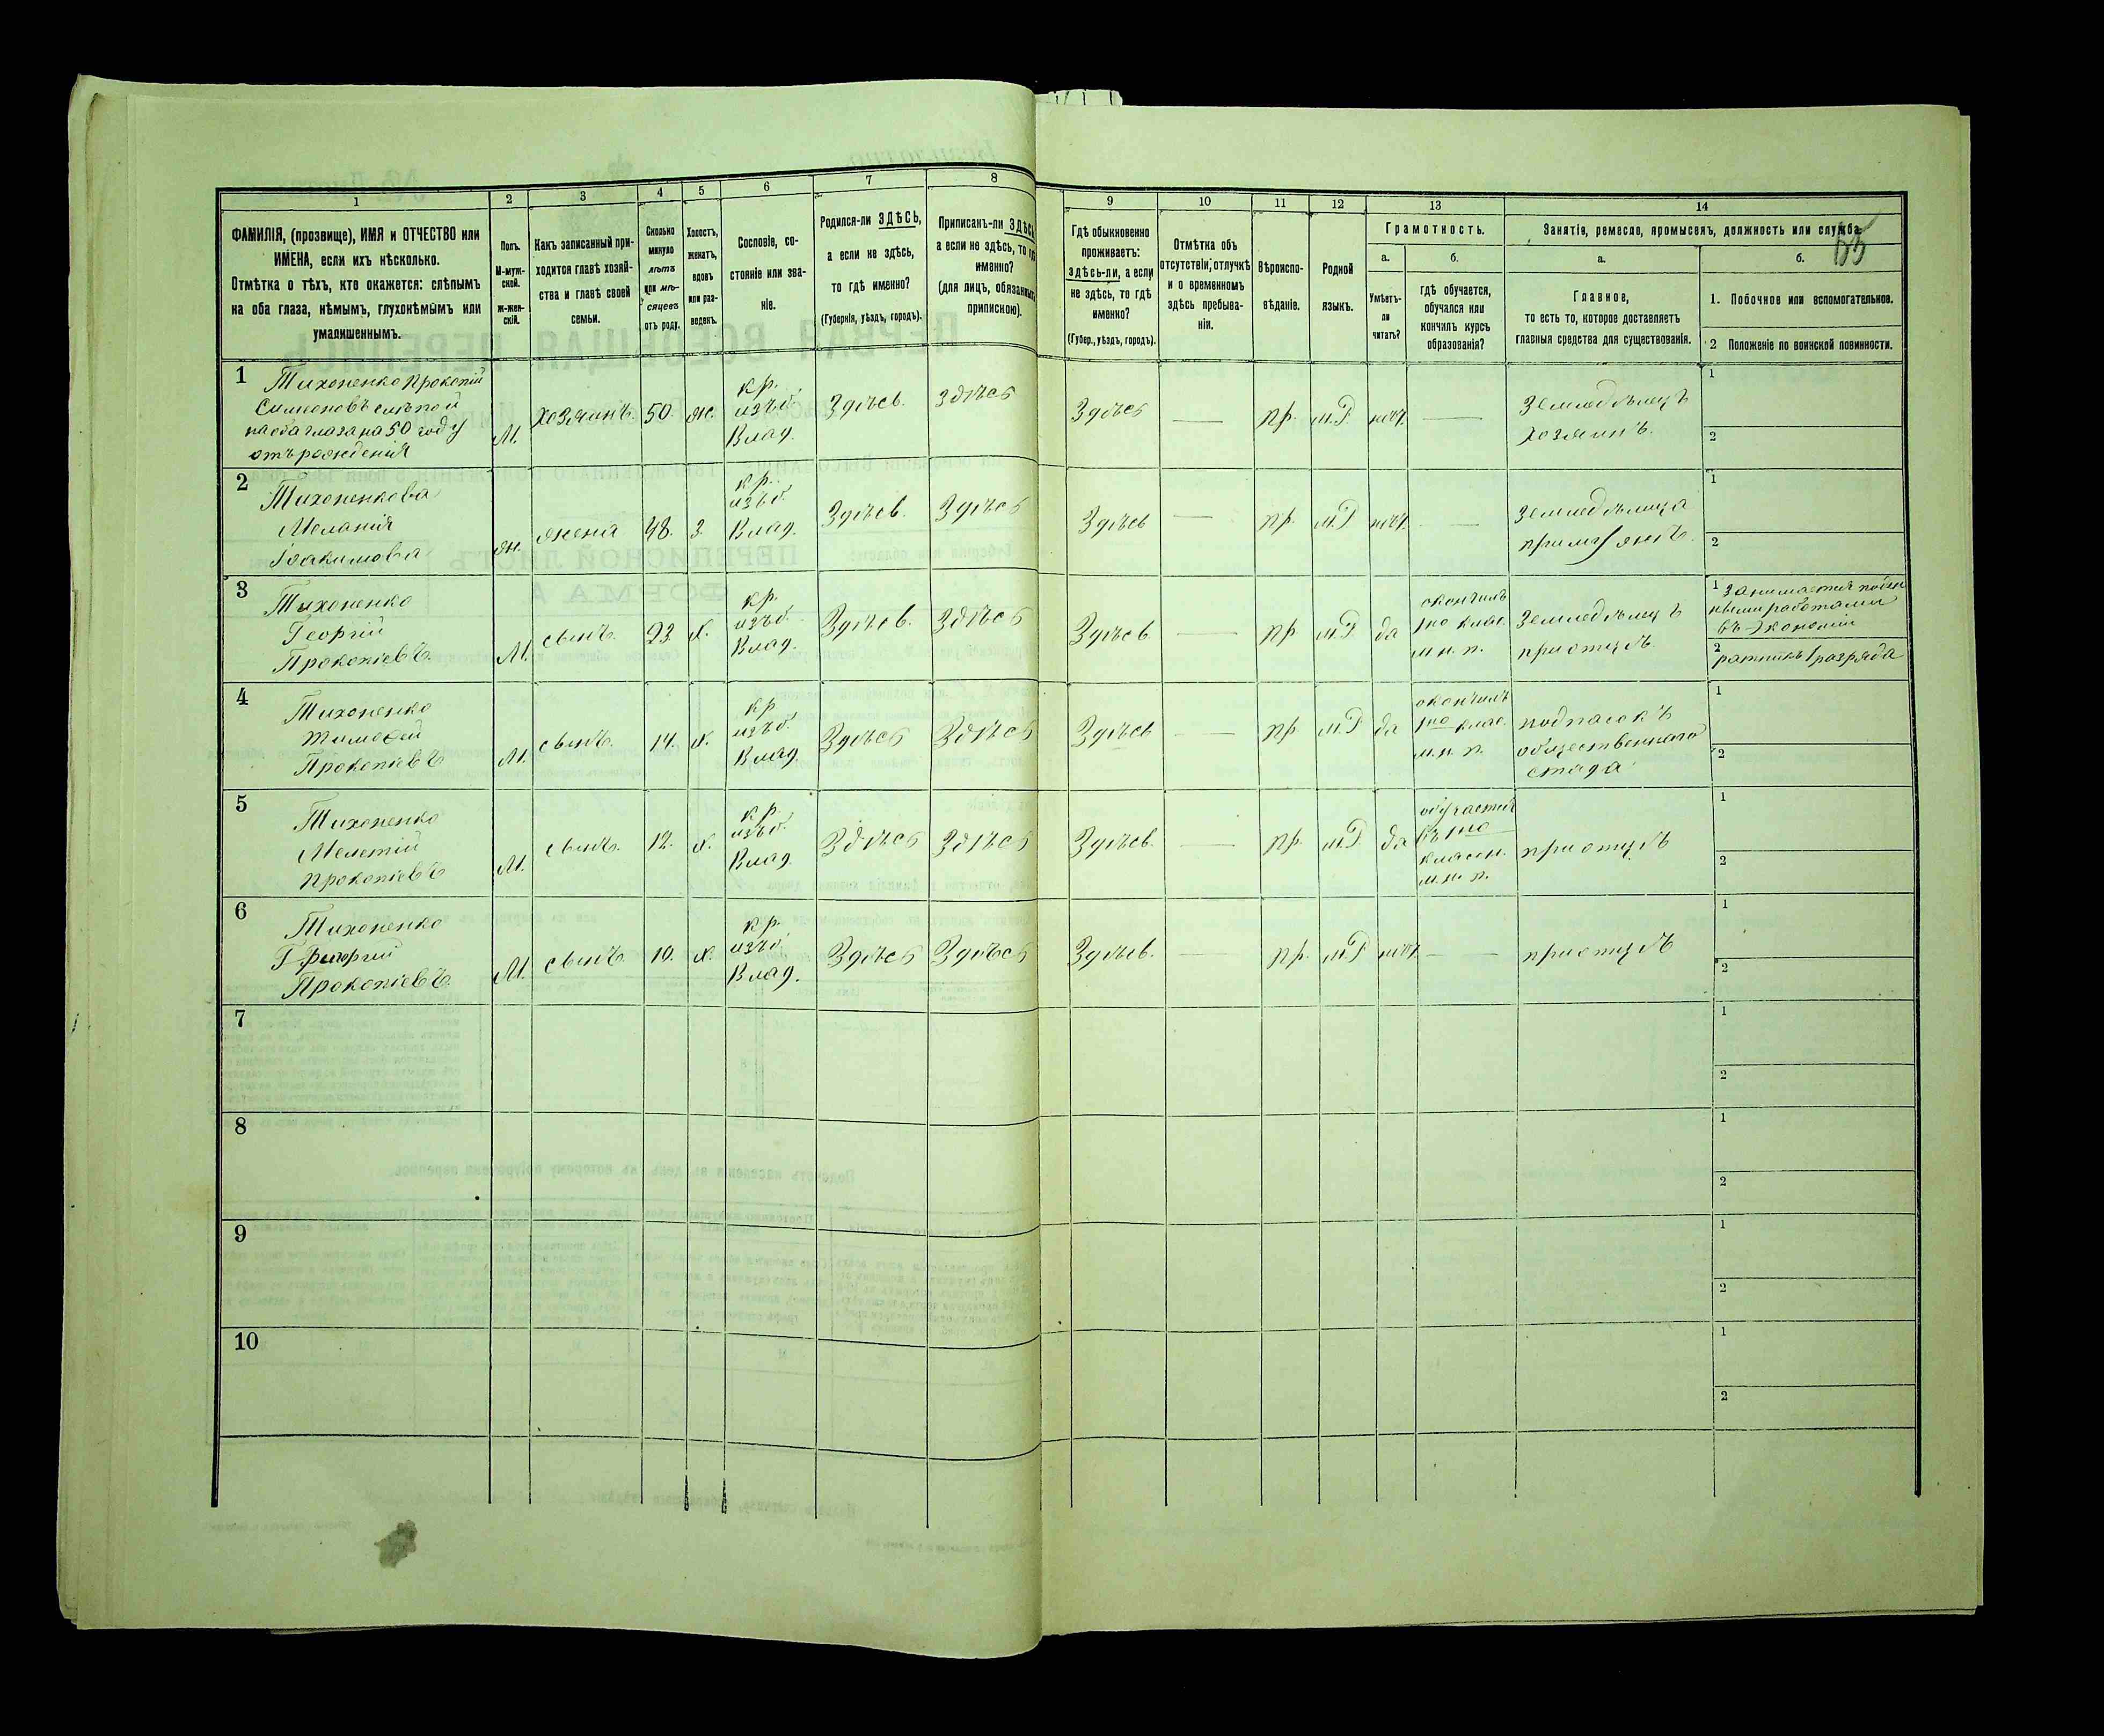 65
1
2
3
4
5
6
7
8
9
10
11
12
13
14
ФАМИЛІЯ, (прозвище), ИМЯ и ОТЧЕСТВО или
ИМЕНА, если ихъ нѣсколько.
Отмѣтка о тѣхъ, кто окажется: слѣпымъ
на оба глаза, нѣмымъ, глухонѣмымъ или
умалишеннымъ.
Полъ.
М-муж-
ской.
ж-жен-
скій.
Какъ записанный при-
ходится главѣ хозяй-
ства и главѣ своей
семьи.
Сколько
минуло
лѣтъ
или мѣ-
сяцевъ
отъ роду.
Холостъ,
женатъ,
вдовъ
или раз-
веденъ.
Сословіе, со-
стояніе или зва-
ніе.
Родился-ли ЗДѢСЬ,
а если не здѣсь,
то гдѣ именно?
(Губернія, уѣздъ, городъ).
Приписанъ-ли ЗДѢСЬ
а если не здѣсь, то гдѣ
именно?
(для лицъ, обязанныхъ
припискою).
Гдѣ обыкновенно
проживаетъ:
здѣсь-ли, а если
не здѣсь, то гдѣ
именно?
(Губер., уѣздъ, городъ).
Отмѣтка объ
отсутствіи, отлучкѣ
и о временномъ
здѣсь пребыва-
ніи.
Вѣроиспо-
вѣданіе.
Родной
языкъ.
Грамотность.
а.
Умѣетъ-
ли
читать?
б.
гдѣ обучается,
обучался или
кончилъ курсъ
образованія?
Занятіе, ремесло, промыселъ, должность или служба.
а.
Главное,
то есть то, которое доставляетъ
главныя средства для существованія.
б.
1. Побочное или вспомогательное.
2 Положеніе по воинской повинности.
1
Тихоненко Прокопій
Симеоновъ слѣпой
на оба глаза на 50 году
отъ рожденія
М.
хозяинъ.
50.
ж.
кр.
изъ б.
Влад.
Здѣсь.
Здѣсь
Здѣсь
—
пр.
м.Р.
нѣт.
—
Земледѣлецъ
хозяинъ.
1
2
2
Тихоненкова
Меланія
Іоакимова
ж.
жена
48.
З.
кр.
изъ б.
Влад.
Здѣсь.
Здѣсь
Здѣсь
—
пр.
м.Р
нѣт.
—
Земледѣлица
при мужѣ.
1
2
3
Тихоненко
Георгій
Прокопіевъ.
М.
сынъ.
23
х.
кр.
изъ б.
Влад.
Здѣсь.
Здѣсь
Здѣсь
—
пр.
м.Р
да
окончилъ
1но клас.
м. н. п.
Земледѣлецъ
при отцѣ.
1 занимается поден
ными работами
въ Экономіи
2 ратникъ 1 разряда
4
Тихоненко
Тимофей
Прокопіевъ
М.
сынъ.
14.
х.
кр
изъ б.
Влад.
Здѣсь
Здѣсь
Здѣсь
—
пр.
м.Р
да
окончилъ
1но клас.
м. н. п.
подпасокъ
общественнаго
стада
1
2
5
Тихоненко
Мелетій
Прокопіевъ
М.
сынъ.
12.
х.
кр.
изъ б.
Влад.
Здѣсь
Здѣсь
Здѣсь.
—
пр.
м.Р
да
обучается
въ 1но
классн.
м. н. п.
при отцѣ
1
2
6
Тихоненко
Григорий
Прокопіевъ.
М.
сынъ
10.
х.
кр.
изъ б.
Влад.
Здѣсь
Здѣсь
Здѣсь.
—
пр.
м.Р
нѣт.
—
при отцѣ
1
2
7
1
2
8
1
2
9
1
2
10
1
2